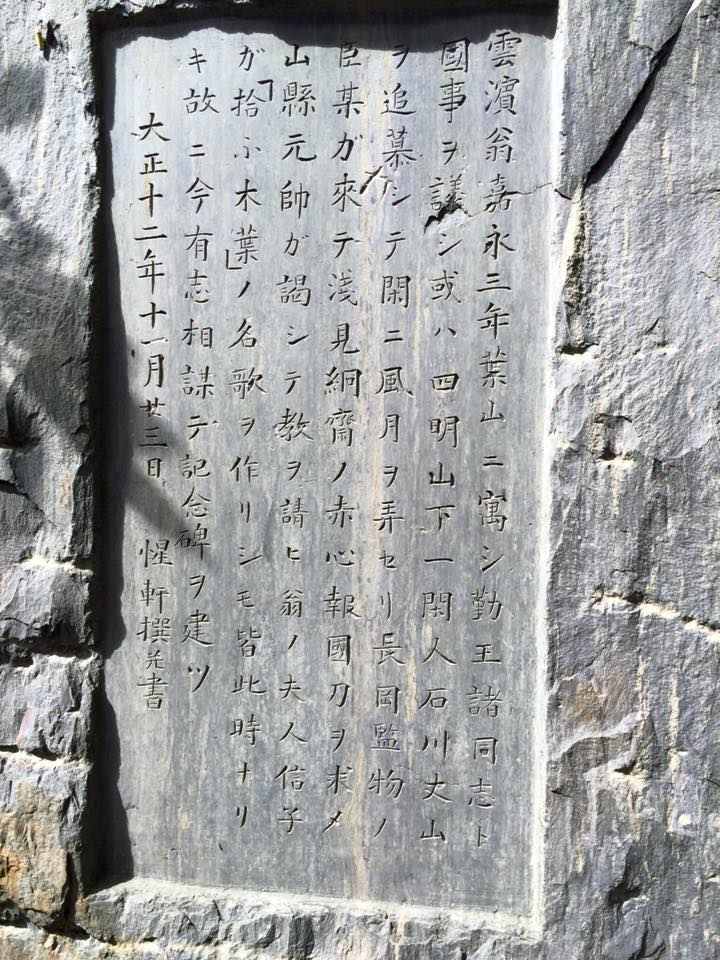 雲濱翁嘉永三年葉山ニ寓シ勤王諸同志ト
國事ヲ議シ或ハ四明山下一閑人石川丈山
ヲ追慕シテ閑ニ風月ヲ弄セリ長岡監物ノ
臣某ガ來テ浅見絅齋ノ赤心報國刀ヲ求メ
山縣元帥ガ謁シテ教ヲ請ヒ翁ノ夫人信子
ガ「拾ふ木葉」ノ名歌ヲ作リシモ皆此時ナリ
キ故ニ今有志相謀テ記念碑ヲ建ツ
大正十二年十一月廿三日 惺軒撰并書